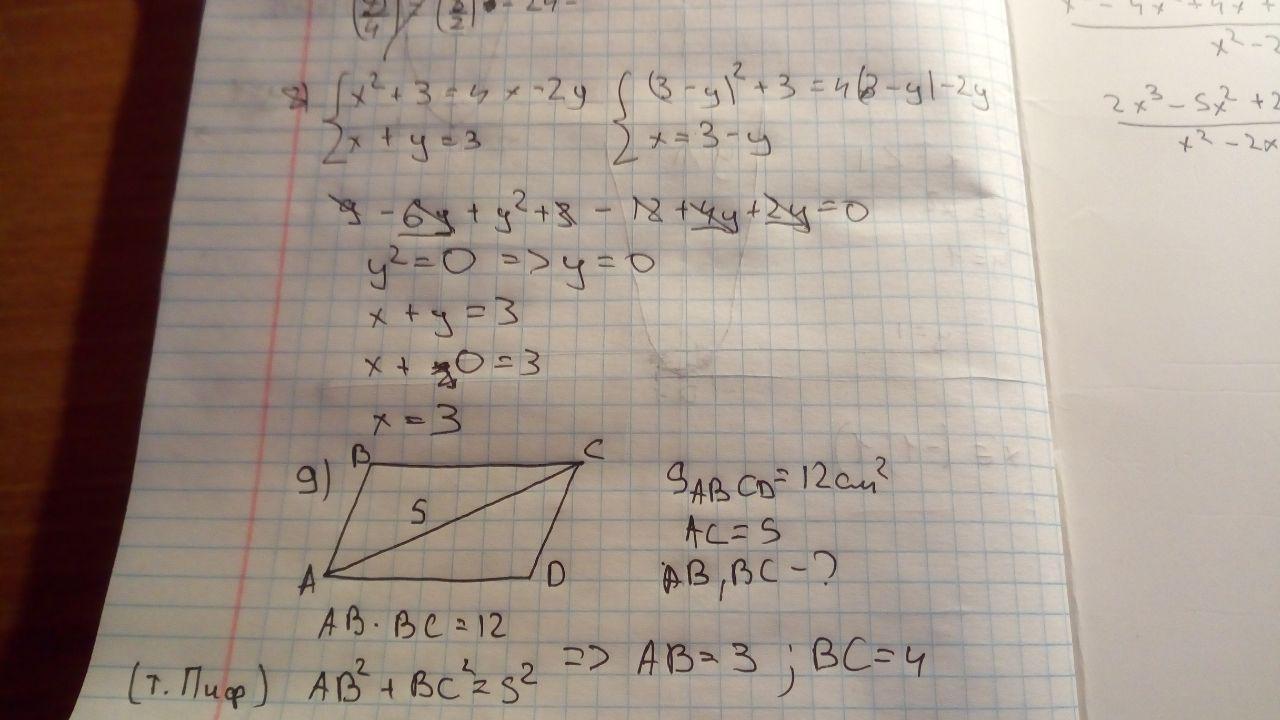 8) { x² + 3 = 4x - 2y { (3 - y)² + 3 = 4(3 - y) - 2y
x + y = 3 x = 3 - y
9 - 6y + y² + 3 - 12 + 4y + 2y = 0
y² = 0 => y = 0
x + y = 3
x + 0 = 3
x = 3
9) B C
5
A D
S ABCD = 12 см²
AC = 5
AB, BC - ?
AB · BC = 12
(т. Пиф) AB² + BC² = 5² => AB = 3 ; BC = 4
2x³ - 5x² + 2
x² - 2x